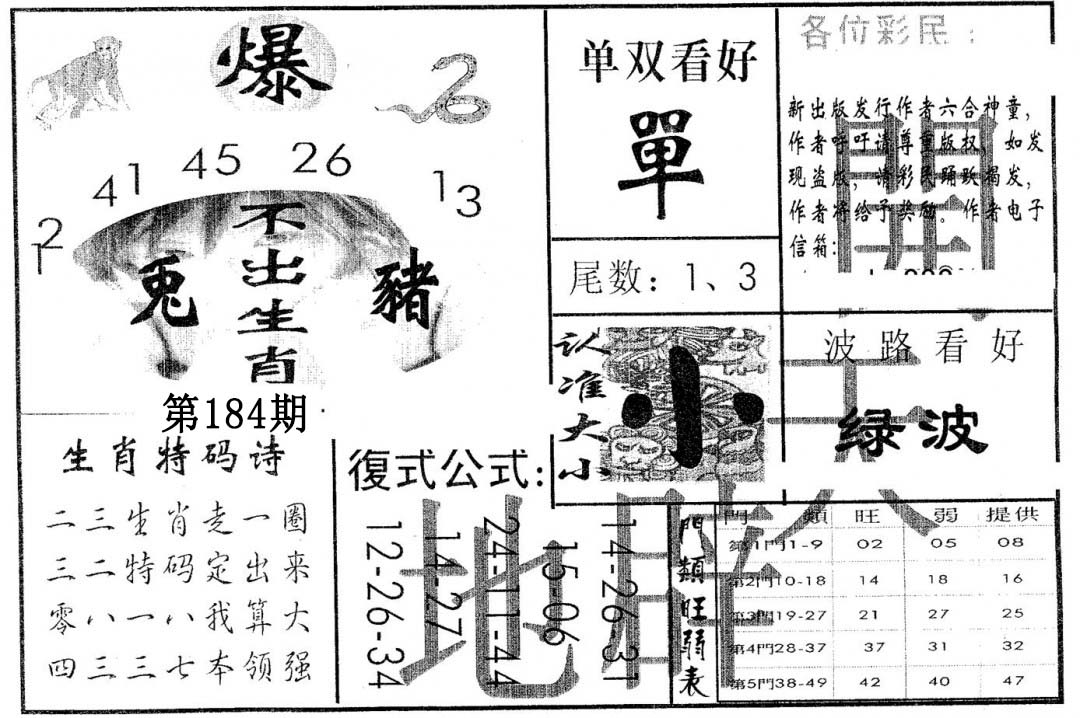 爆
12
41
45
26
13
不出生肖
兔
豬
第184期
生肖特码诗
二三生肖走一圈
三二特码定出来
零八一八我算大
四三三七本领强
单双看好
單
尾数：1、3
认准大小
小
各位彩民：
新出版发行作者六合神童，
作者呼吁请尊重版权，如发
现盗版，请彩民踊跃揭发，
作者将给予奖励。作者电子
信箱：
波路看好
绿波
復式公式:
12-26-34
14-27
24-11-44
15-06
14-26-31
門類旺弱表
門類 旺 弱 提供
第1門1-9 02 05 08
第2門10-18 14 18 16
第3門19-27 21 27 25
第4門28-37 37 31 32
第5門38-49 42 40 47
地